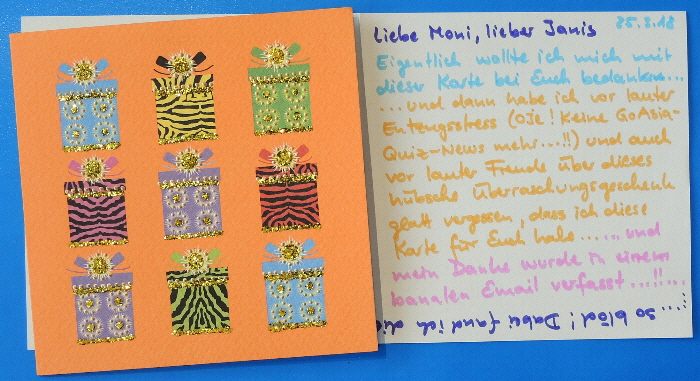 25.2.18
Liebe Moni, lieber Janis
Eigentlich wollte ich mich mit
dieser Karte bei Euch bedanken...
...und dann habe ich vor lauter
Entzugsstress (Oje! Keine GoAsia-
Quiz-News mehr...!!) und auch
vor lauter Freude über dieses
hübsche Überraschungsgeschenk
glatt vergessen, dass ich diese
Karte für Euch habe......und
mein Danke wurde in einem
banalen Email verfasst...!!...
...so blöd! Dabei fand ich die